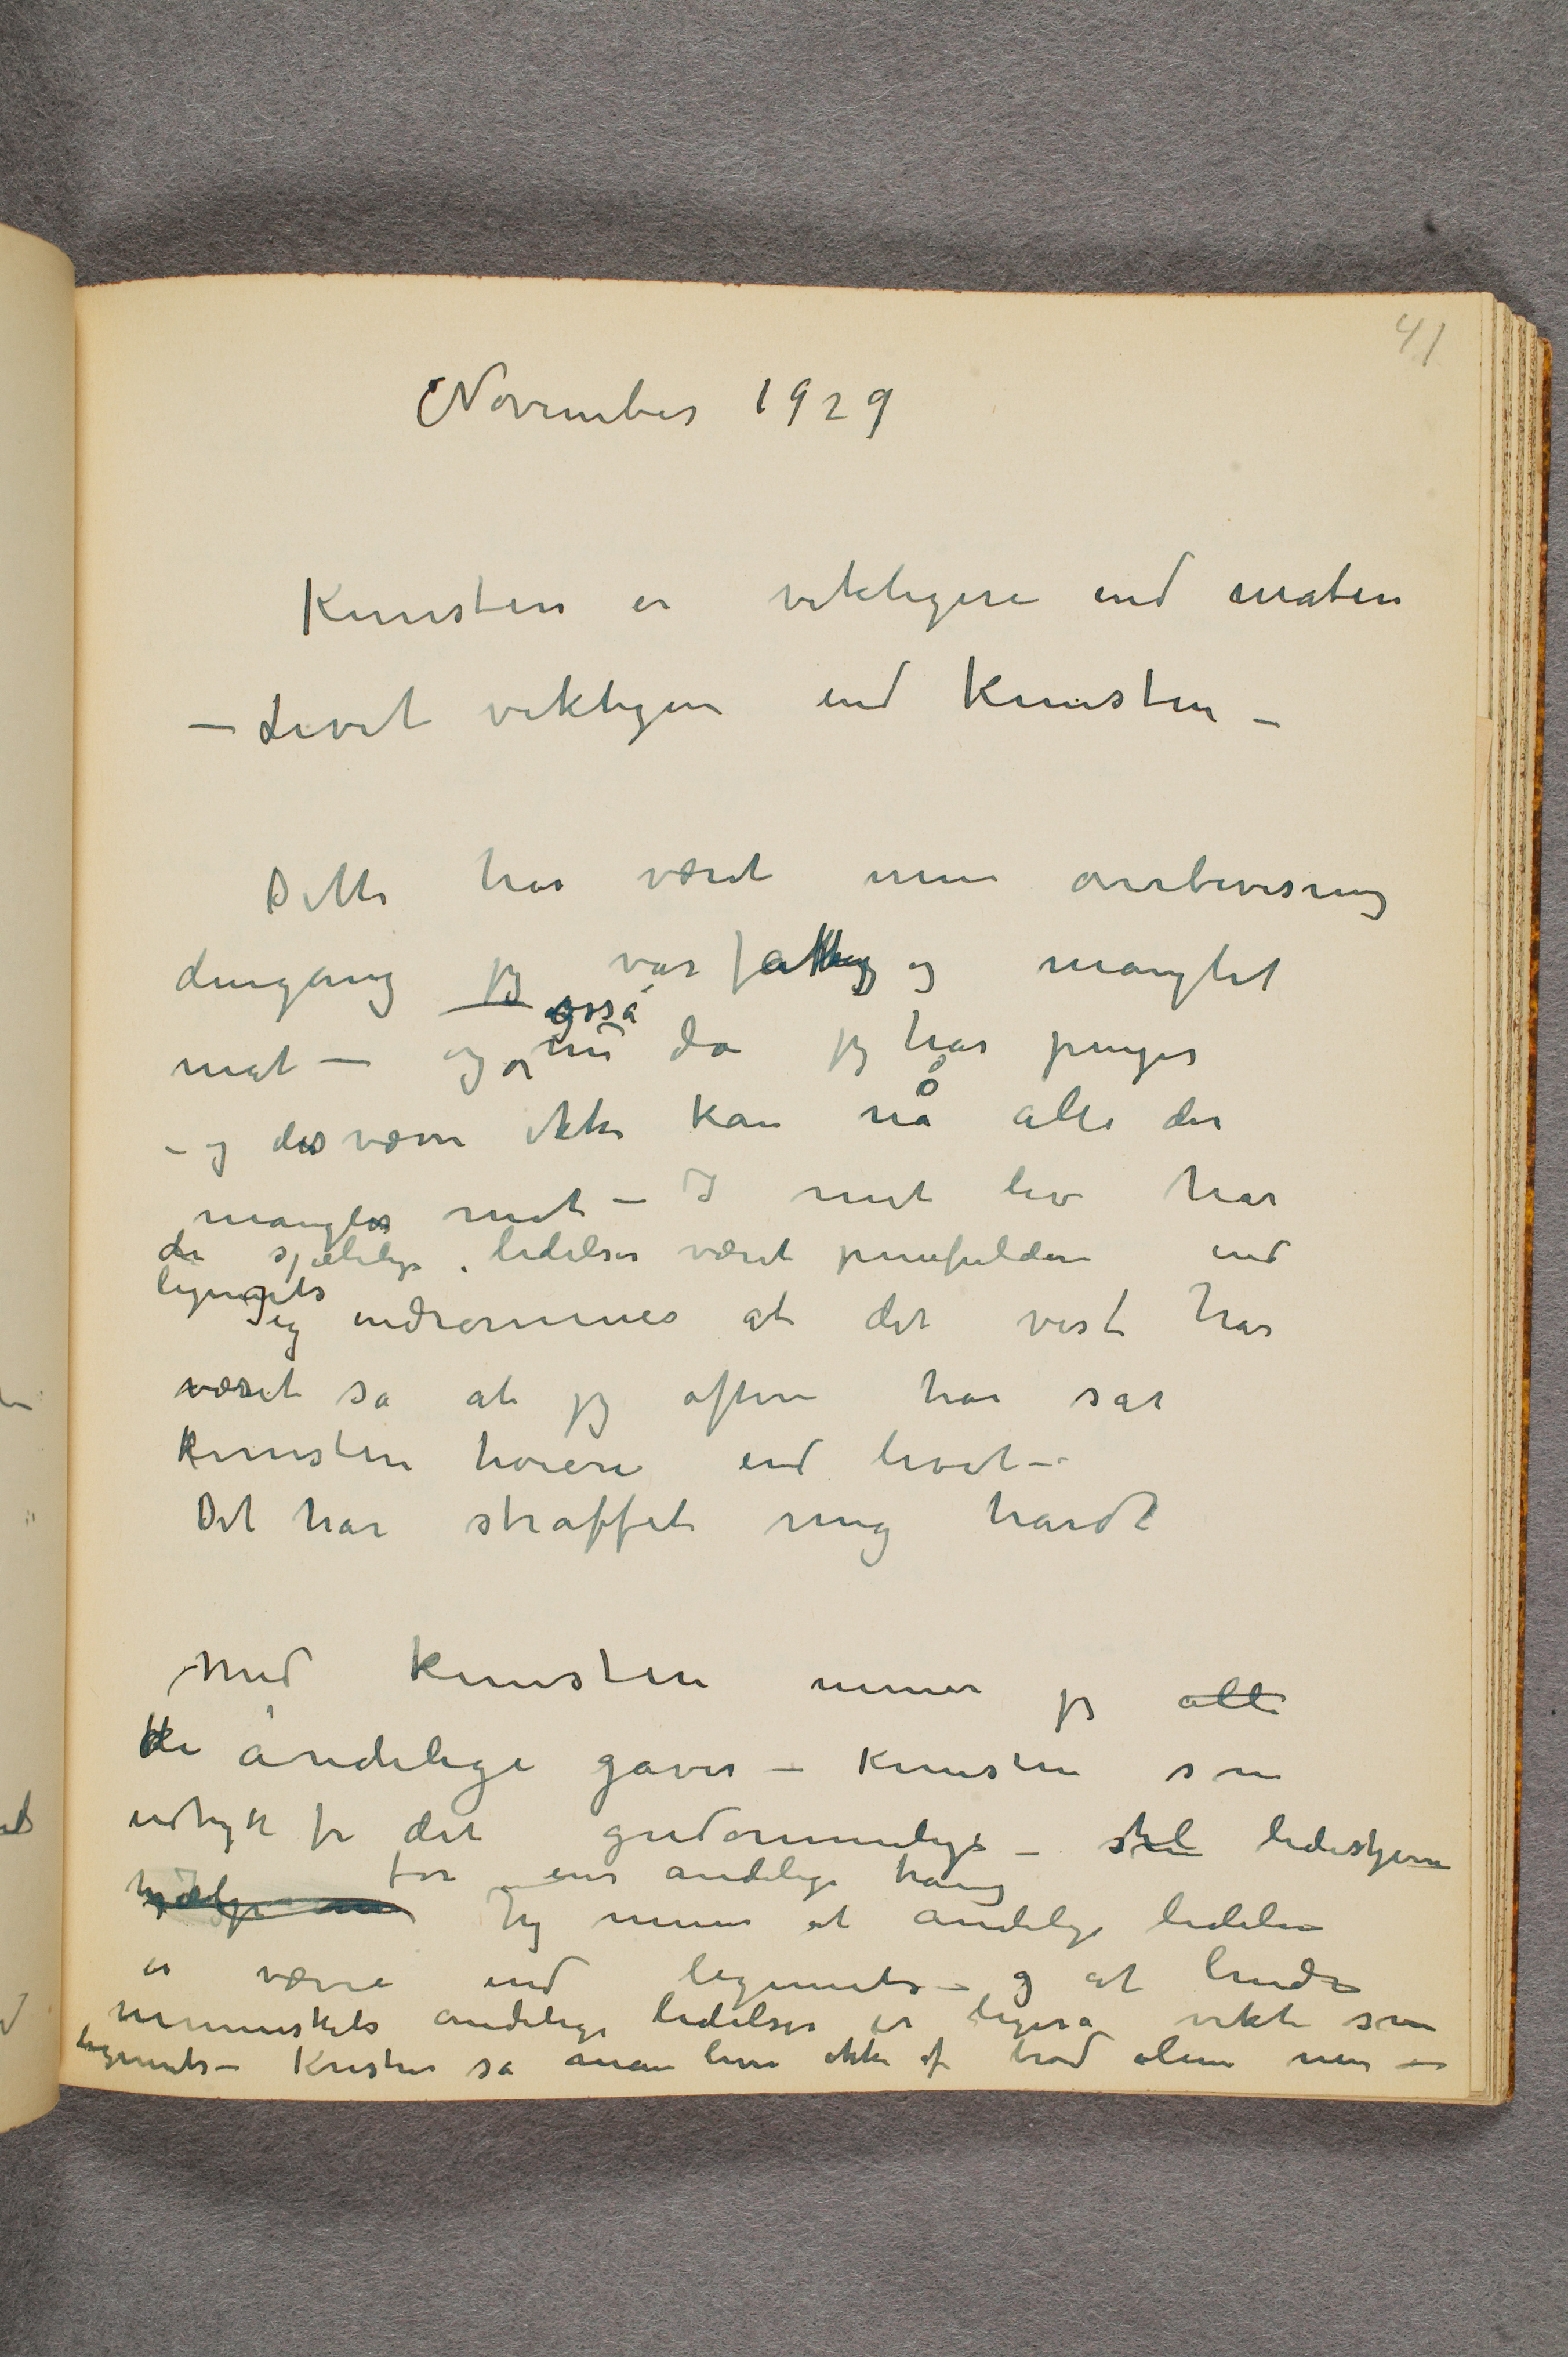 41
November 1929
Kunsten er viktigere end maten
– Livet viktigere end Kunsten –
Dette har været min overbevisning
dengang jeg var fattig og manglet
også
mat – og nu da jeg har penger
– og desværre ikke kan nå alle der
mangler mat – I mit liv har
de sjælelige lidelser været pinefuldere end
legemets
Jeg indrømmer at det vist har
været så at jeg oftere har sat
kunsten høiere end livet –
Det har straffet mig hardt
Med kunsten mener jeg alle
de åndelige gaver – Kunsten som
udtryk for det guddommelige – ledestjerne
for ens åndelige trang
hjælp Jeg mener at åndelige lidelser
er værre end legemets – og at lindre
menneskets åndelige lidelser er ligeså vikti som
legemets – Kristus sa man lever ikke af brød alene men –